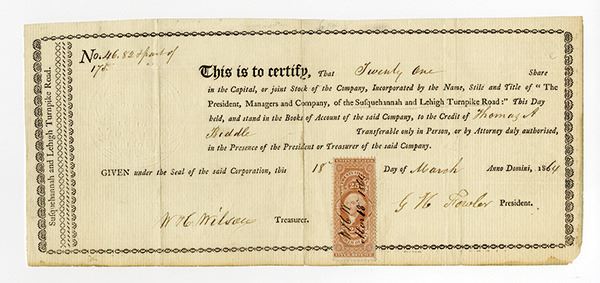 Sufquehannah and Lehigh Turnpike Road.
No. 46. 82 & part of
175.
This is to certify, That Twenty One Share
in the Capital, or joint Stock of the Company, Incorporated by the Name, Stile and Title of "The
President, Managers and Company, of the Sufquehannah and Lehigh Turnpike Road:" This Day
held, and stand in the Books of Account of the said Company, to the Credit of Thomas A
Biddle Transferable only in Person, or by Attorney duly authorised,
in the Presence of the President or Treasurer of the said Company.
GIVEN under the Seal of the said Corporation, this 18 Day of March Anno Domini, 1864
W H Wilson Treasurer. G H Fowler President.